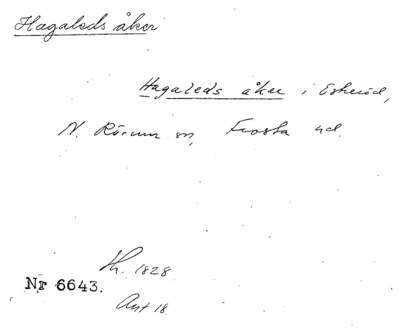 Hagaleds åker
Hagaleds åker i Eskeröd,
N. Rörum sn, Frosta hd.
Lh. 1828
Nr 6643.
Akt 18.